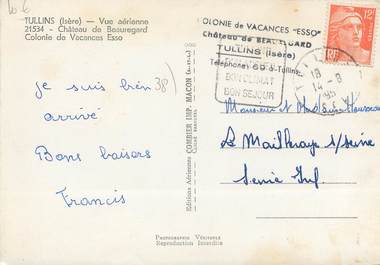 TULLINS (Isère) — Vue aérienne
21534 - Château de Beauregard
Colonie de Vacances Esso
je suis bien
arrivé
Bons baisers
Francis
38)
Editions Aériennes COMBIER IMP. MACON
COLONIE de VACANCES "ESSO"
Château de BEAUREGARD
TULLINS (Isère)
Téléphone: 60 à Tullins
BON CLIMAT
BON SEJOUR
12F
RF
18
14 - 8
Monsieur et Madame
La Mailleraye s/seine
Seine Inf.
Photographie Véritable
Reproduction Interdite